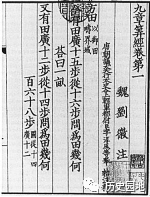 九章算經卷第一
魏劉徽注
唐朝議大夫行太史令上輕車都尉臣李淳風等奉敕注釋
方田以御田疇界域
今有田廣十五步從十六步問為田幾何
答曰一畝
又有田廣十二步從十四步問為田幾何
百六十八步圖從十四廣十二
历史园地